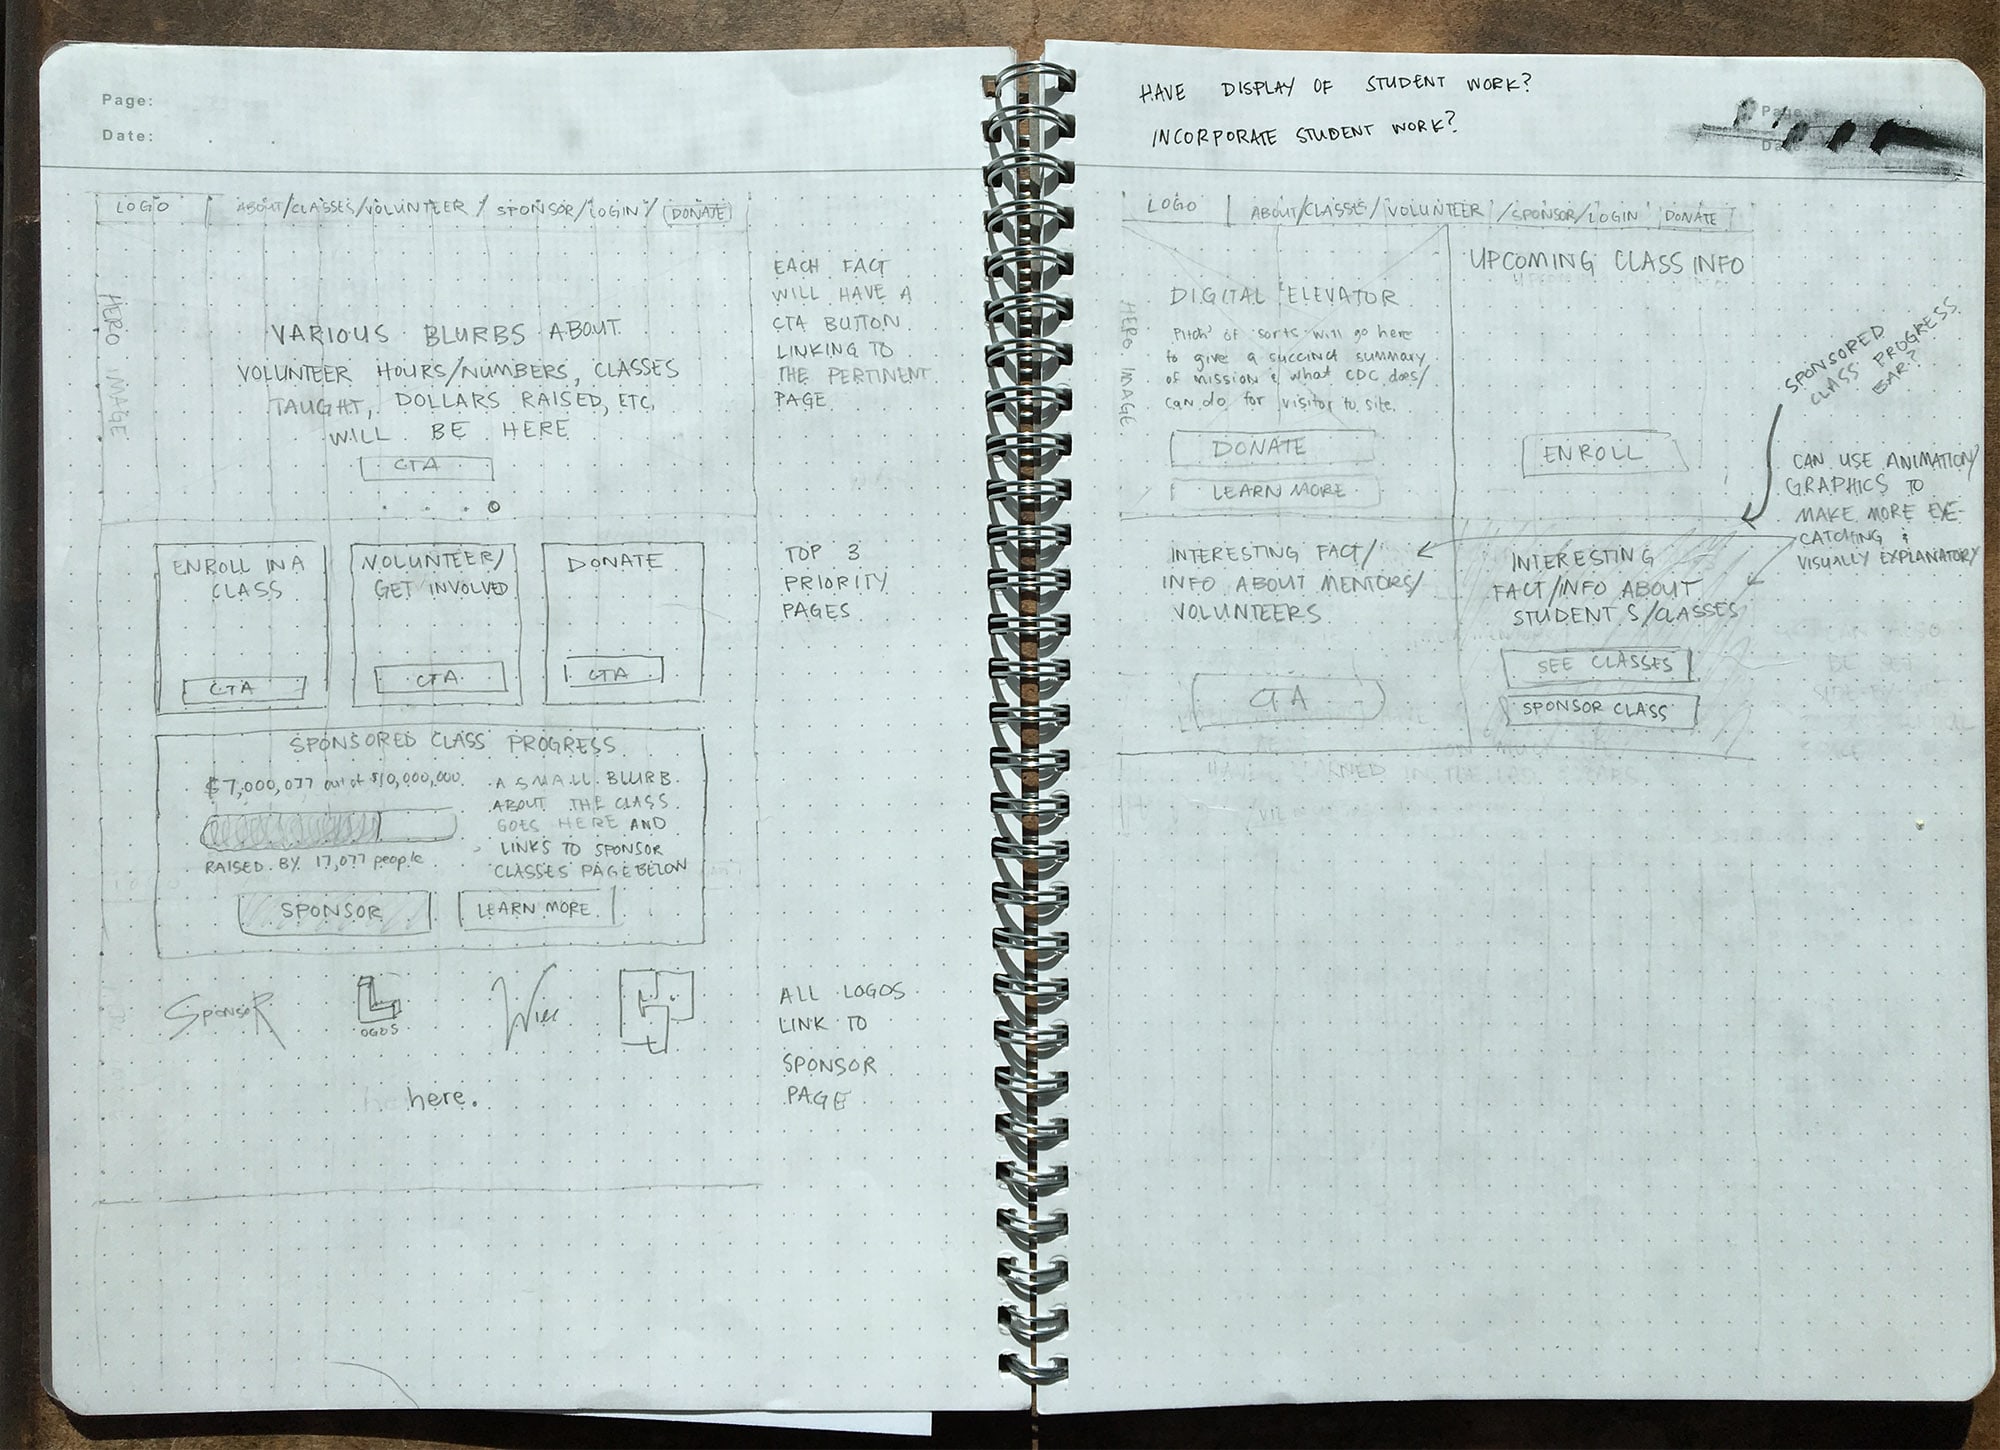 Page:
Date:
LOGO
ABOUT/CLASSES/VOLUNTEER / SPONSOR/LOGIN/ DONATE
HERO IMAGE
VARIOUS BLURBS ABOUT
VOLUNTEER HOURS/NUMBERS, CLASSES
TAUGHT, DOLLARS RAISED, ETC.
WILL BE HERE
CTA
EACH FACT
WILL HAVE A
CTA BUTTON
LINKING TO
THE PERTINENT
PAGE
ENROLL IN A
CLASS
CTA
VOLUNTEER/
GET INVOLVED
CTA
DONATE
CTA
TOP 3
PRIORITY
PAGES
SPONSORED CLASS PROGRESS
$7,000,077 out of $10,000,000
RAISED BY 17,077 people
A SMALL BLURB
ABOUT THE CLASS
GOES HERE AND
LINKS TO SPONSOR
CLASSES PAGE BELOW
SPONSOR
LEARN MORE
SponsoR
L
OGOS
Will
ALL LOGOS
LINK TO
SPONSOR
PAGE
here.
HAVE DISPLAY OF STUDENT WORK?
INCORPORATE STUDENT WORK?
LOGO
ABOUT/CLASSES/VOLUNTEER/SPONSOR/LOGIN DONATE
HERO IMAGE
DIGITAL ELEVATOR
Pitch of sorts will go here
to give a succinct summary
of mission & what CDC does/
can do for visitor to site.
DONATE
LEARN MORE
UPCOMING CLASS INFO
ENROLL
SPONSORED
CLASS PROGRESS
BAR?
CAN USE ANIMATION/
GRAPHICS TO
MAKE MORE EYE-
CATCHING &
VISUALLY EXPLANATORY
INTERESTING FACT/
INFO ABOUT MENTORS/
VOLUNTEERS
CTA
INTERESTING
FACT/INFO ABOUT
STUDENTS/CLASSES
SEE CLASSES
SPONSOR CLASS